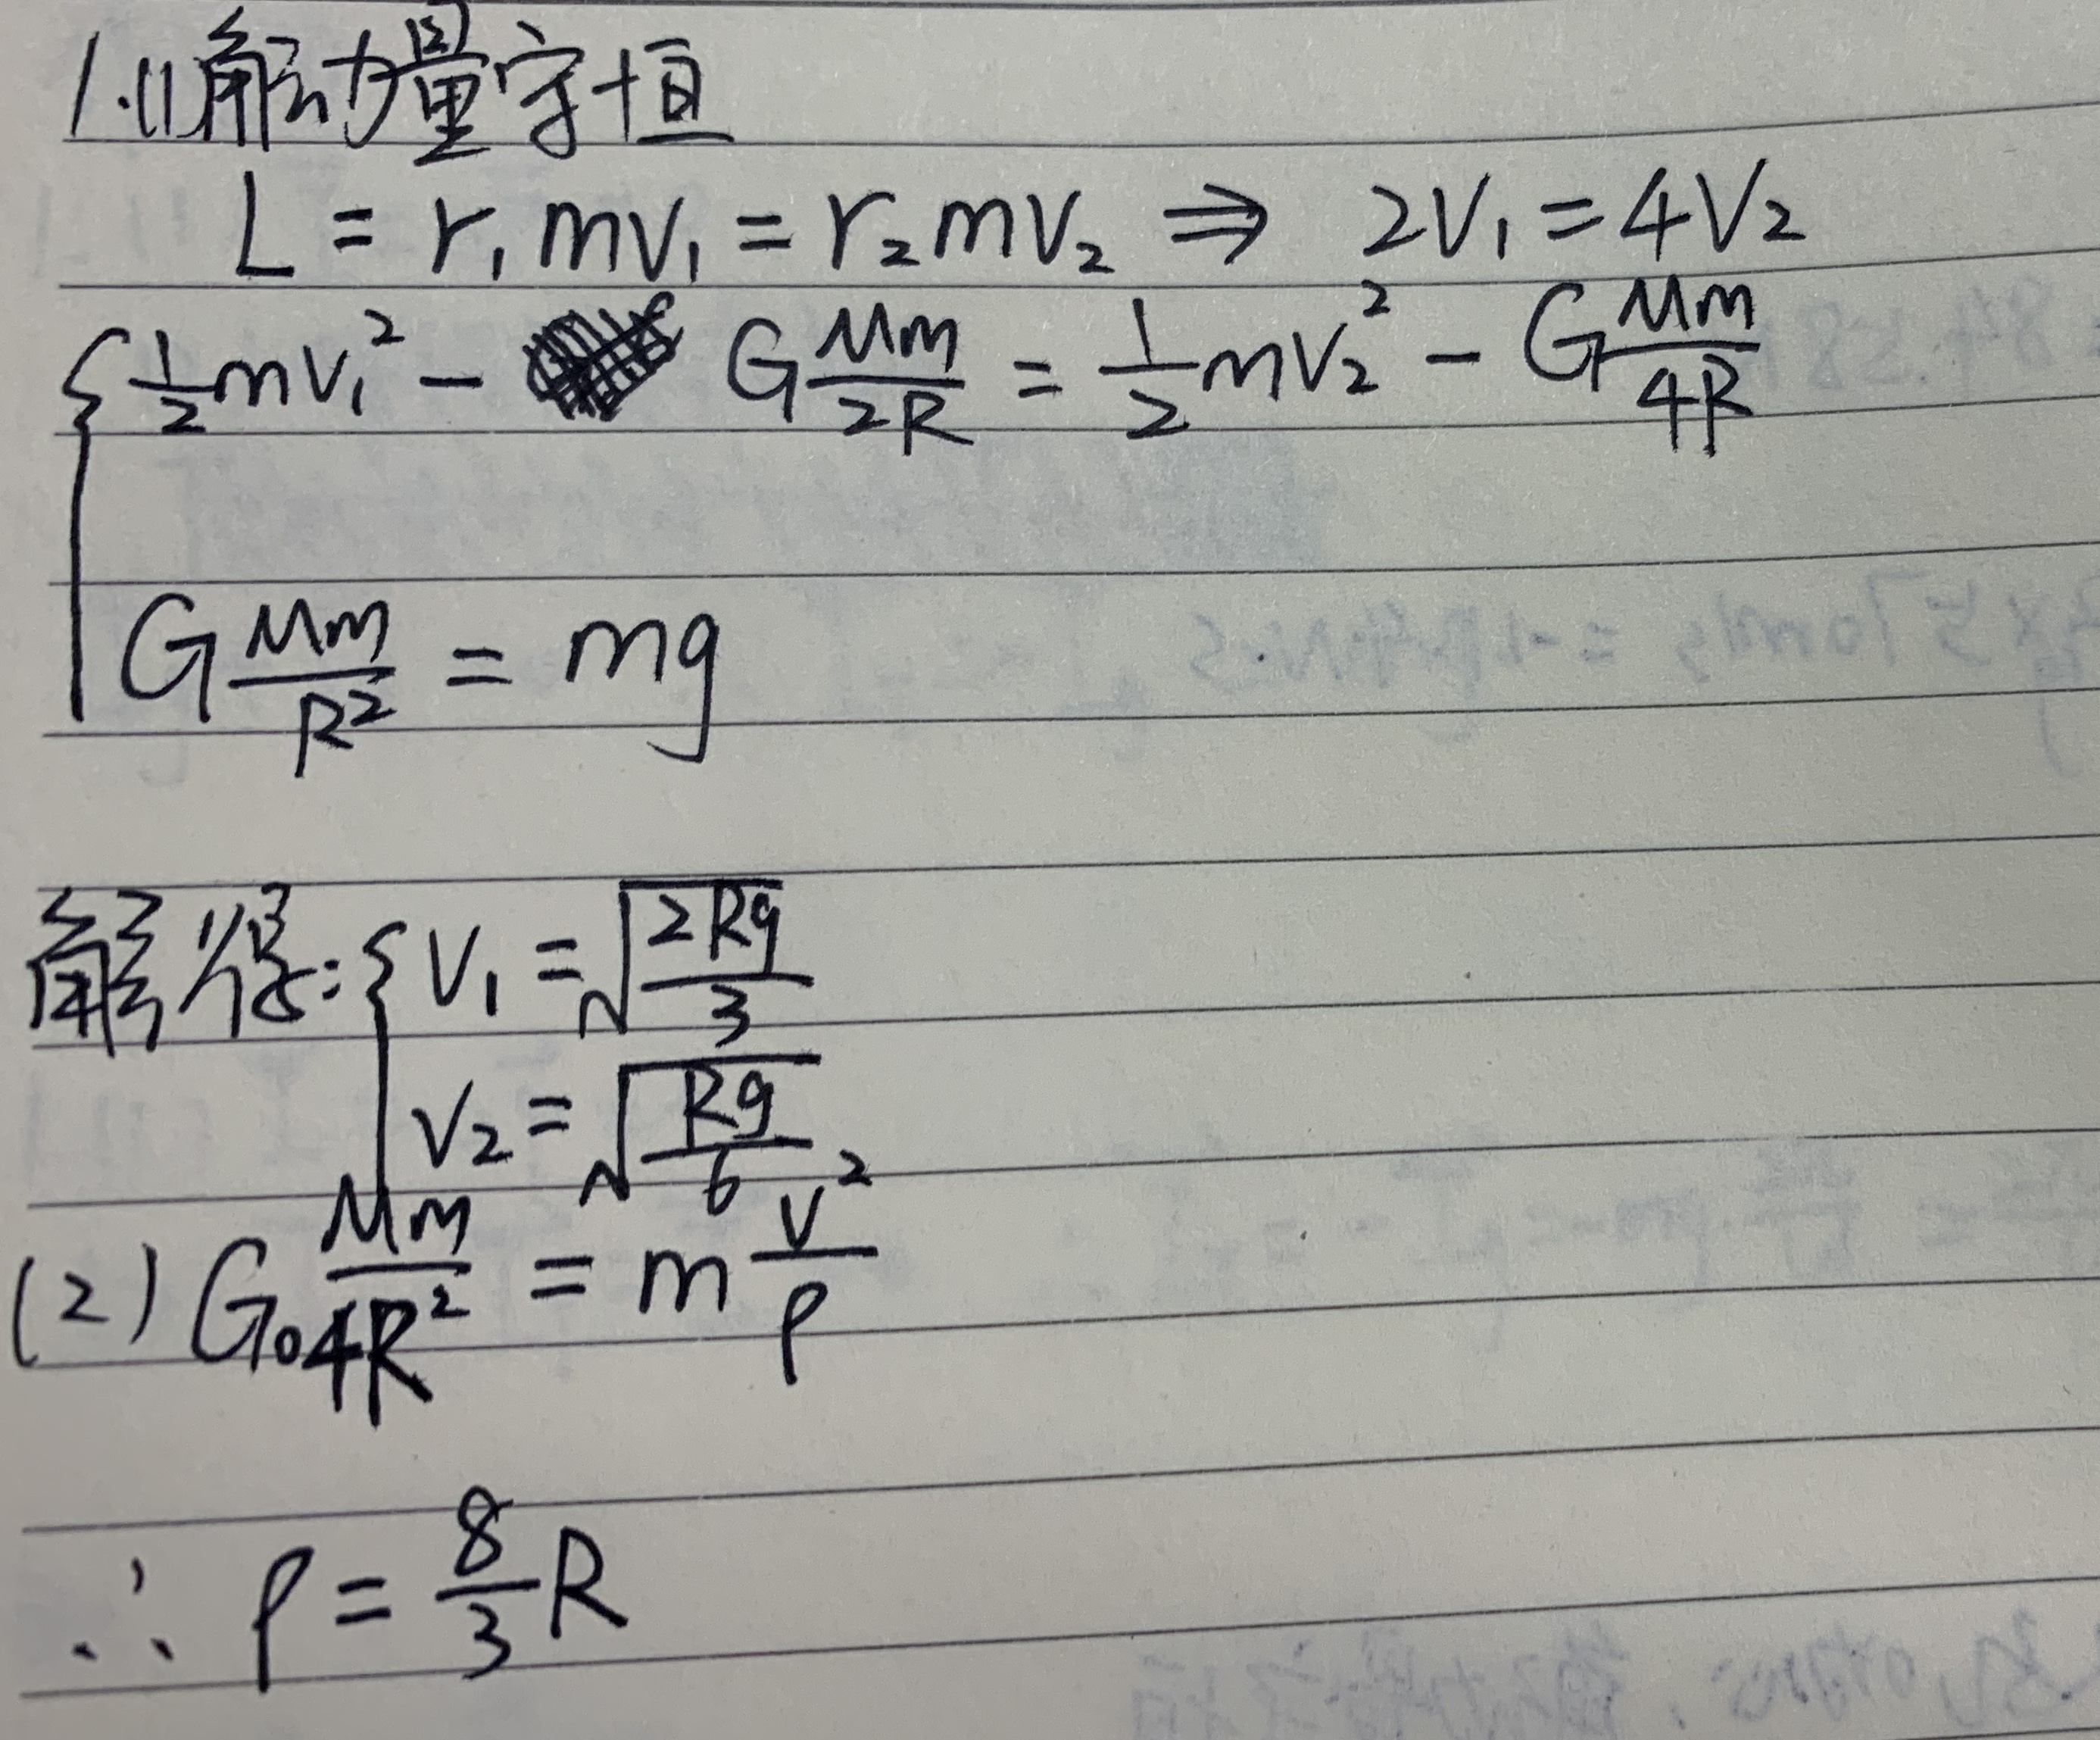 1.(1)角动量守恒
L = r₁mv₁ = r₂mv₂ ⇒ 2V₁ = 4V₂
{ ½mv₁² - G Mm/2R = ½mv₂² - G Mm/4R
G Mm/R² = mg
解得: { V₁ = √(2Rg/3)
V₂ = √(Rg/6)
(2) G Mm/4R² = m v²/ρ
∴ ρ = 8/3 R